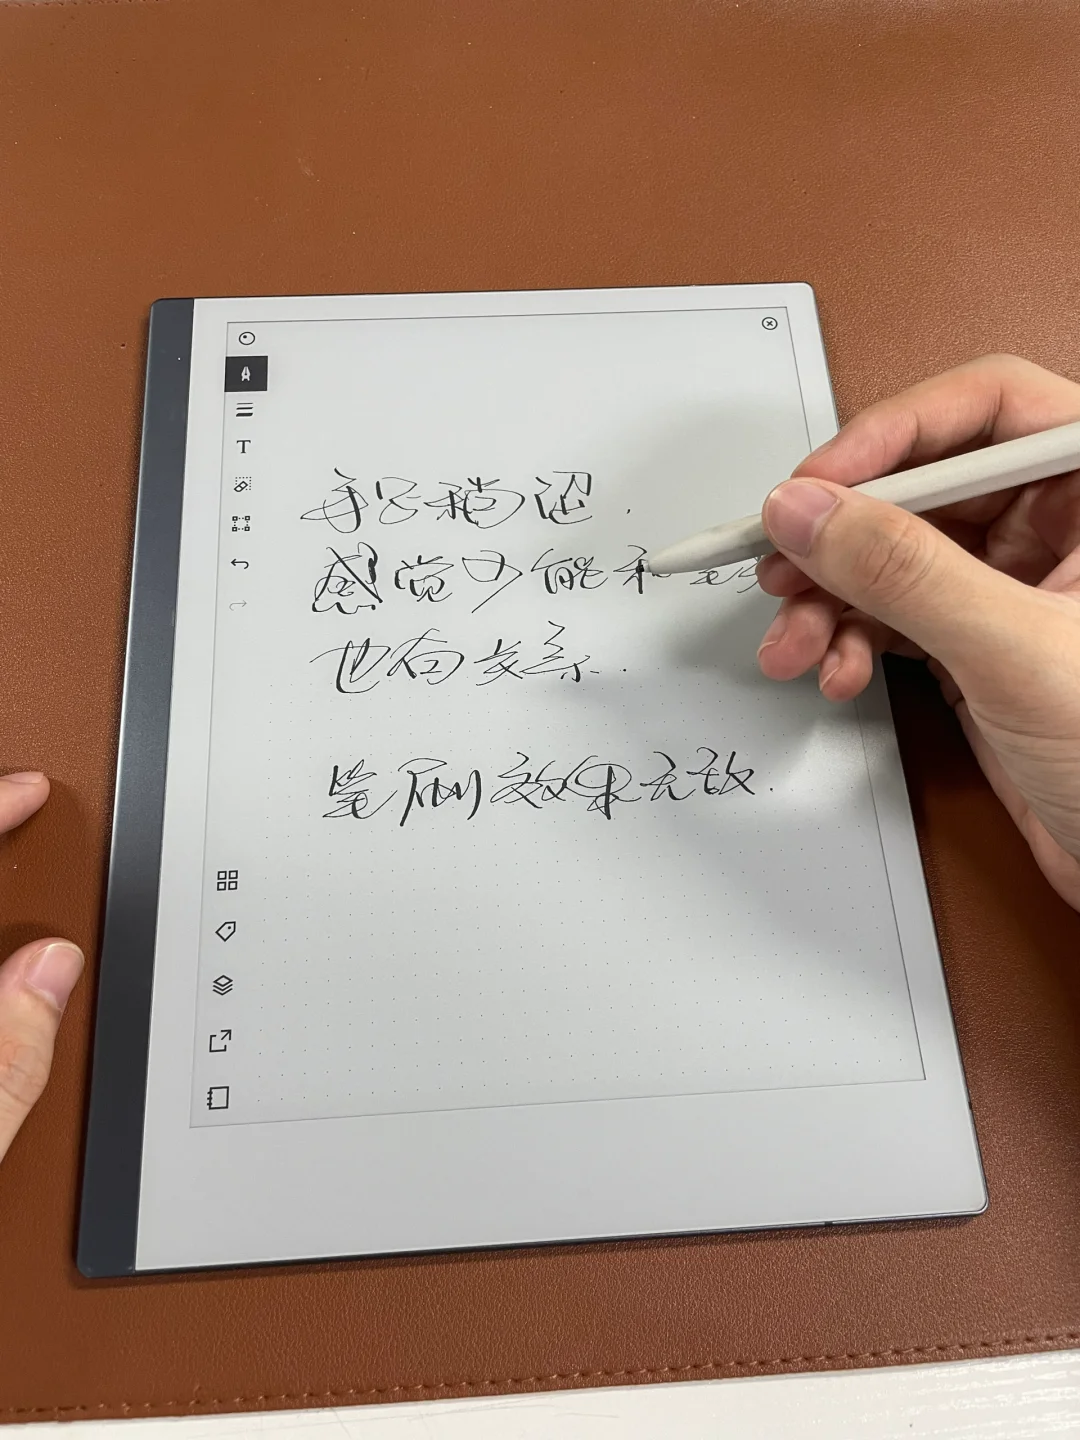 手写稍涩.
感觉可能和笔
也有关系.
笔刷效果无敌.